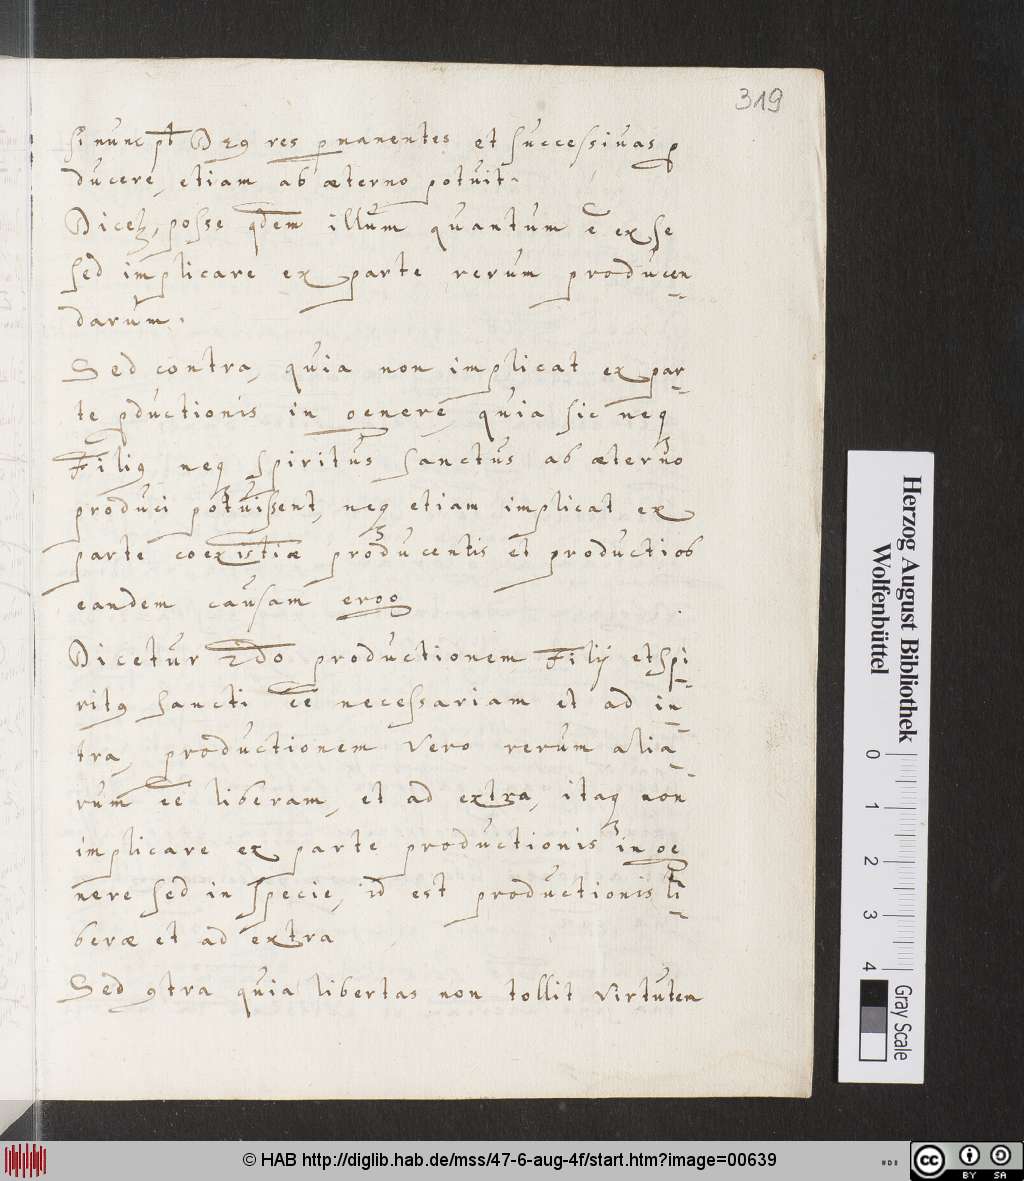 319
si nunc pt Deꝰ res ꝑmanentes et successiuas ꝓ
ducere, etiam ab æterno potuit.
Dicetꝫ, posse qdem illum quantum ē ex se
sed implicare ex parte rerum producen
darum.
Sed contra, quia non implicat ex par-
te ꝓductionis in genere, quia sic neqꝫ
Filiꝰ neqꝫ spiritus sanctus ab æterno
produci potuissent, neqꝫ etiam implicat ex
parte coexistiæ producentis et producti ob
eandem causam ergo
Dicetur 2do productionem Filij et spi-
ritꝰ sancti ēē necessariam et ad in-
tra, productionem vero rerum alia-
rum ēē liberam, et ad extra, itaqꝫ non
implicare ex parte productionis in ge
nere sed in specie, id est productionis li-
beræ et ad extra
Sed ꝯtra quia libertas non tollit virtutem
Herzog August Bibliothek
Wolfenbüttel
0 1 2 3 4
Gray Scale
© HAB http://diglib.hab.de/mss/47-6-aug-4f/start.htm?image=00639
cc BY SA